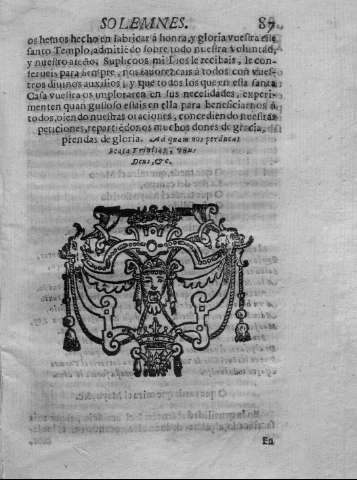 SOLEMNES. 87
os hemos hecho en fabricar á honra, y gloria vuestra este
santo Templo, admitiẽdo sobre todo nuestra voluntad,
y nuestro afecto. Suplicoos mi Dios le recibais, le con-
serueis para siempre, nos fauorezcais á todos con vues-
tros diuinos auxilios, y que todos los que en esta santa
Casa vuestra os imploraren en sus necesidades, experi-
menten quan gustoso estais en ella para beneficiarnos á
todos, oiendo nuestras oraciones, concediendo nuestras
peticiones, repartiẽdonos muchos dones de gracia,
prendas de gloria. Ad quam nos perducat
Beata Trinitas, Vnus
Deus, &c.
En